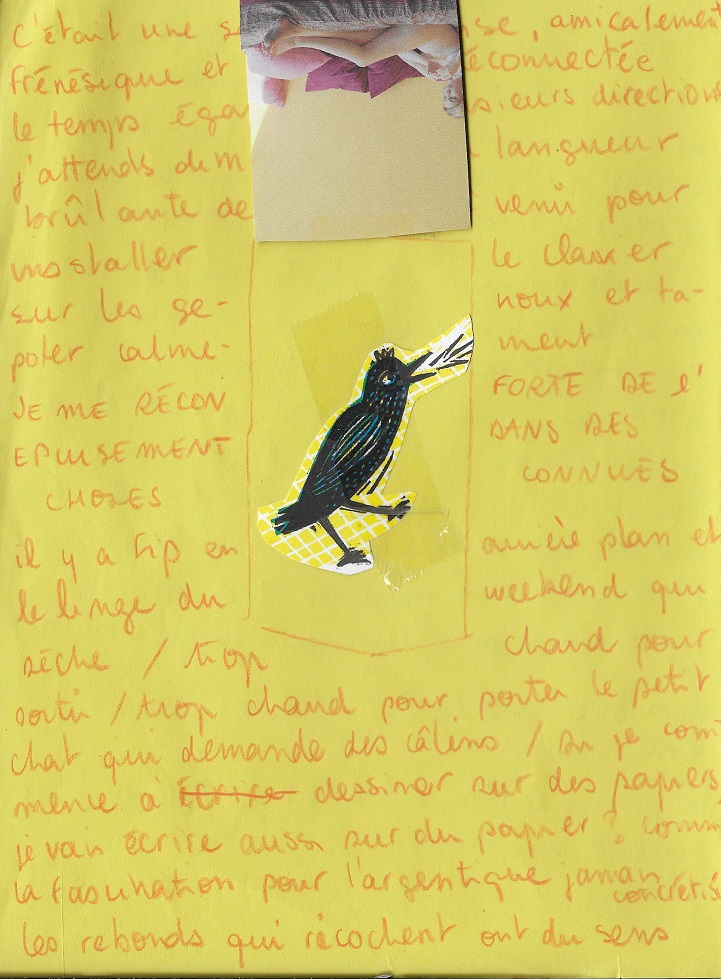 C'était une se nse, amicalement
frénésique et déconnectée
le temps égar sieurs direction
j'attends dem langueur
brûlante de venir pour
installer le clavier
sur les ge- noux et ta-
poter calme- ment
JE ME RÉCON FORTE DE l'
EPUISEMENT DANS DES
CHOSES CONNUES
il y a Fip en arrière plan et
le linge du weekend qui
sèche / trop chaud pour
sortir / trop chaud pour porter le petit
chat qui demande des câlins / Si je com
mence à écrire dessiner sur des papiers
je vais écrire aussi sur du papier ? comme
la fascination pour l'argentique jamais
concrétis
les rebonds qui ricochent ont du sens